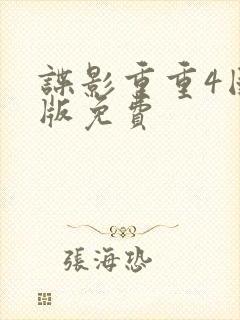 諜影重重4國
版免費
張海恐